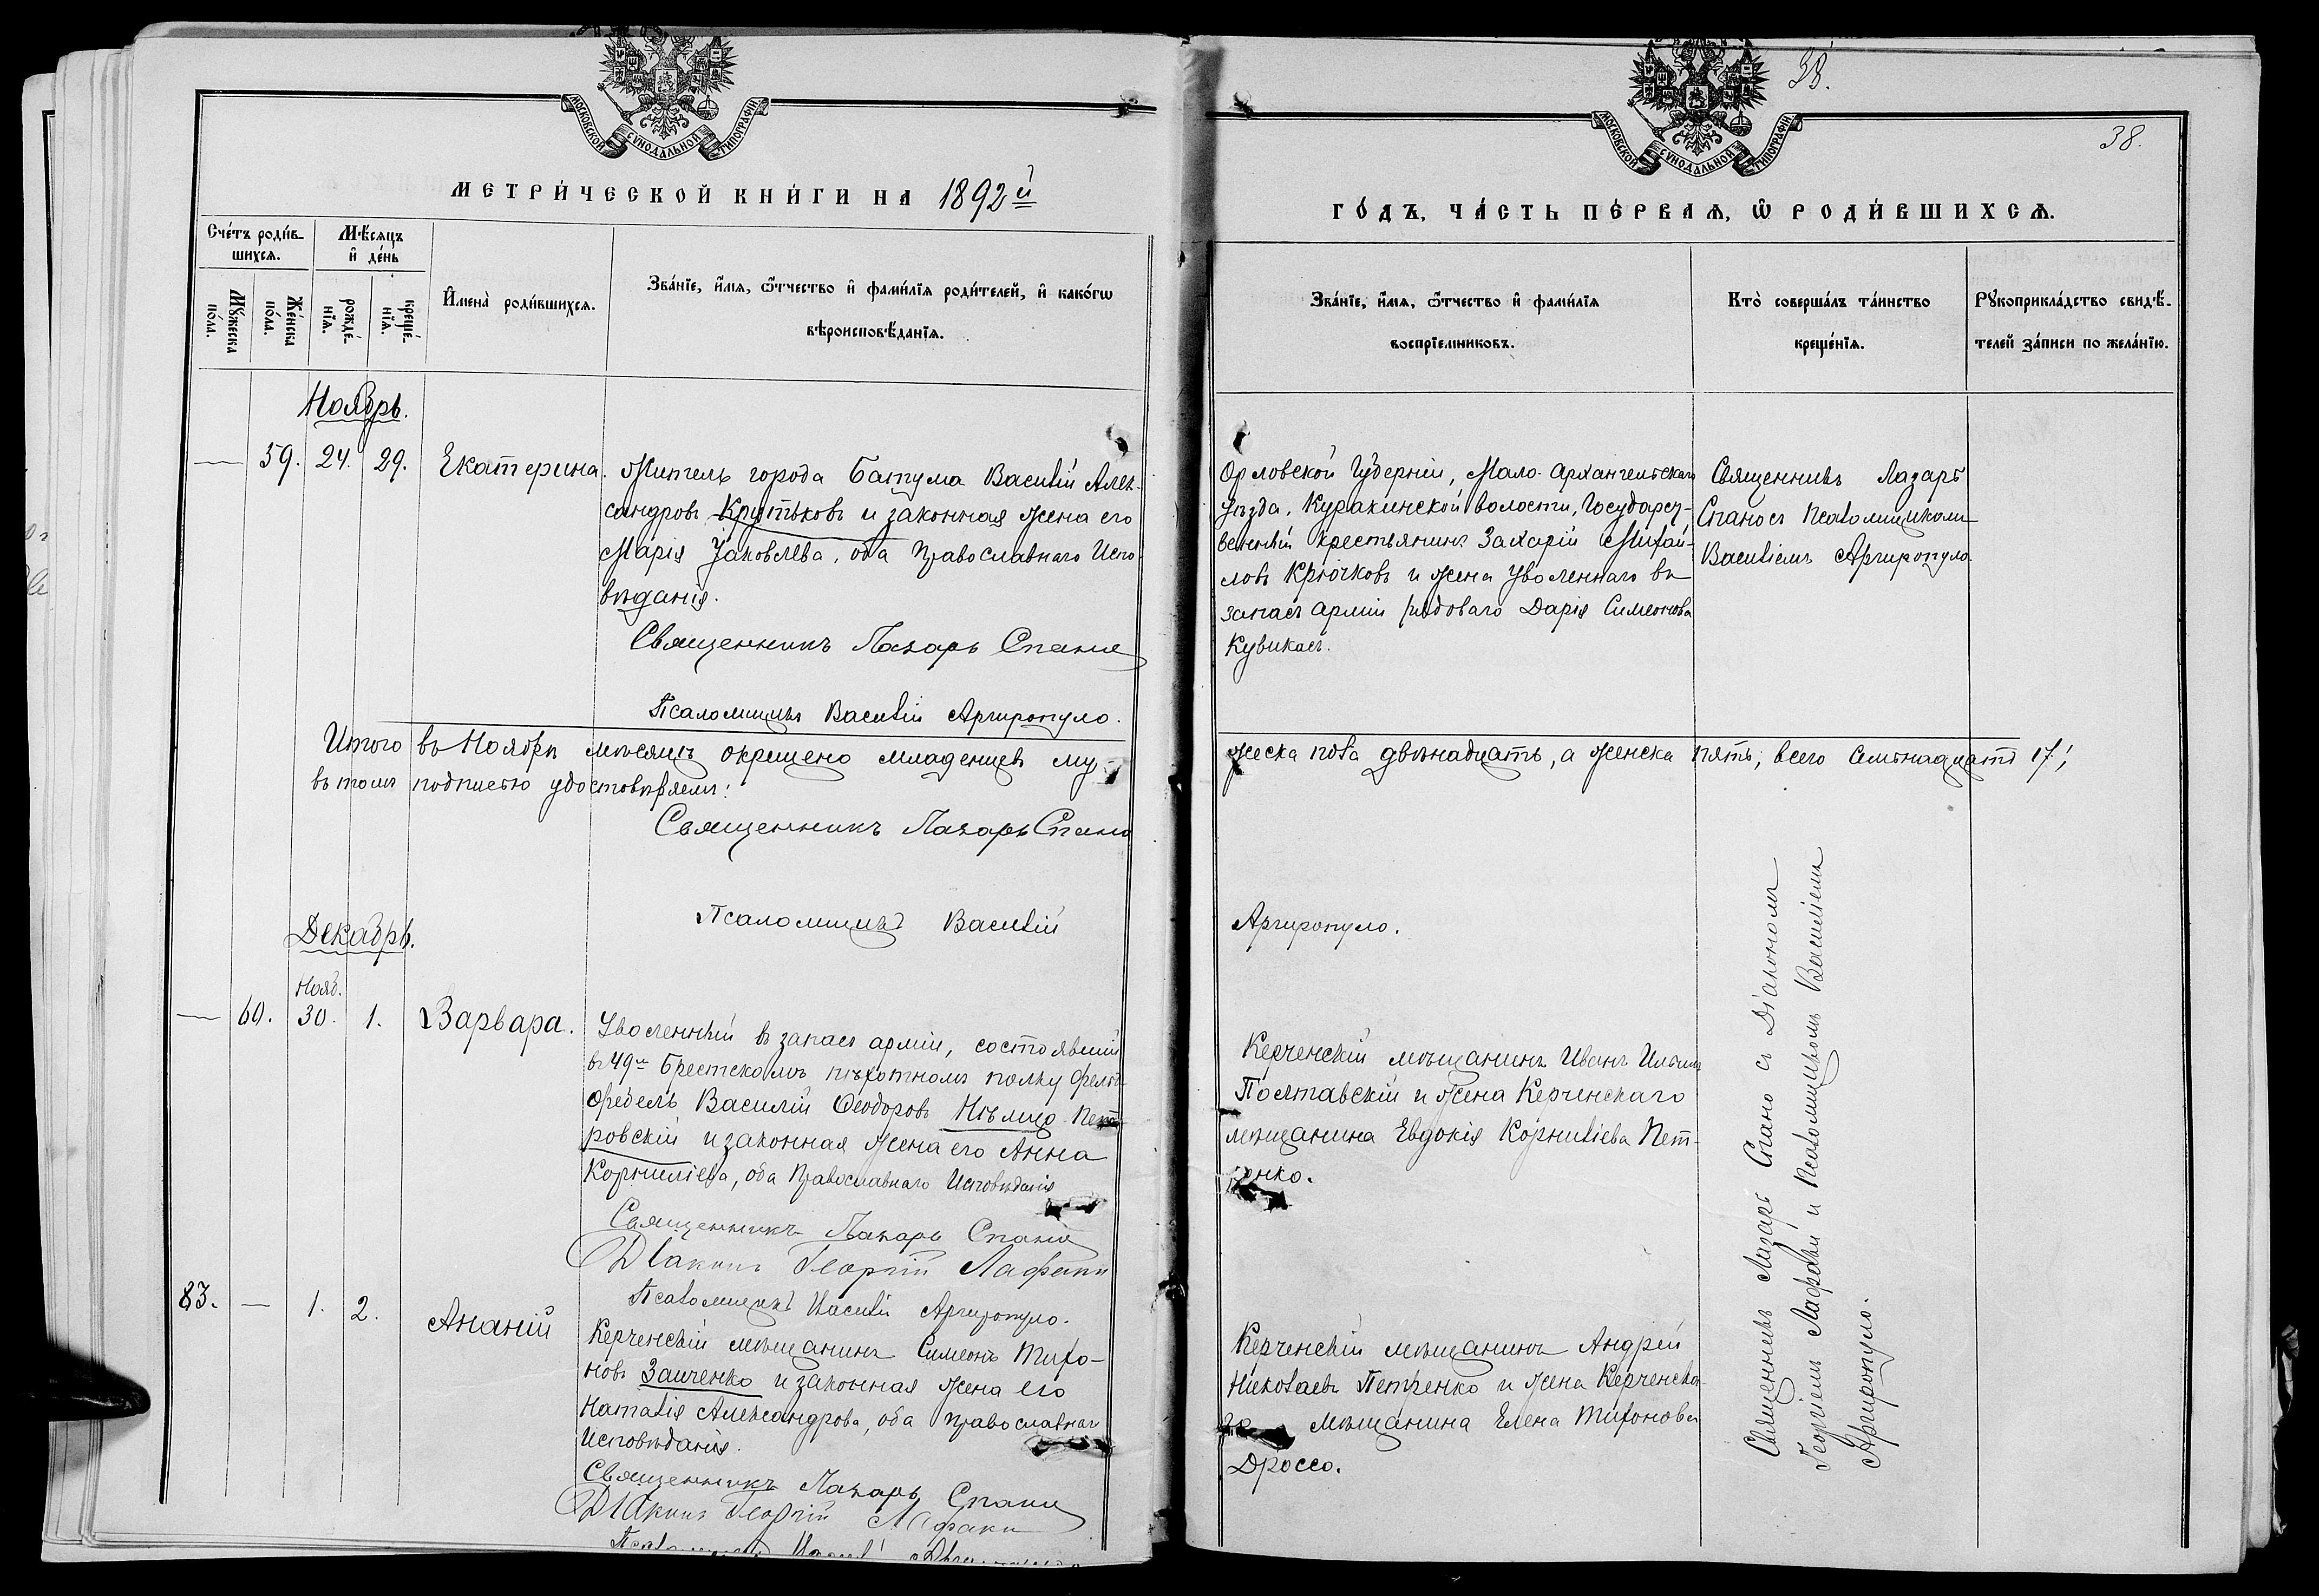 МОСКОВСКОЙ СѴНОДАЛЬНОЙ ТИПОГРАФІИ
МЕТРИ́ЧЕСКОЙ КНИ́ГИ НА 1892й
Сче́тъ роди́в-
шихсѧ.
Мѣ́сѧцъ
и҆ де́нь
Мꙋ́жеска
по́ла.
Же́нска
по́ла.
рожде́-
нїѧ.
креще́-
нїѧ.
И҆мена̀ роди́вшихсѧ.
Зва́нїе, и҆́мѧ, ѻ҆́тчество и҆ фами́лїѧ роди́телей, и҆ како́гѡ
вѣроисповѣ́данїѧ.
Ноябрь.
— 59. 24. 29. Екатерина.
Житель города Батума Василій Алек-
сандровъ Крутьковъ и законная жена его
Марія Яковлева, оба Православнаго Испо-
вѣданія.
Священникъ Лазарь Спано
Псаломщикъ Василій Аргиропуло.
Итого въ Ноябрѣ мѣсяцѣ окрещено младенцевъ му-
въ томъ подписью удостовѣряемъ:
Священникъ Лазарь Спано
Псаломщикъ Василій
Декабрь.
Нояб.
— 60. 30. 1. Варвара.
Уволенный въ запасъ арміи, состоявшій
въ 49мъ Брестскомъ пѣхотномъ полку фельд-
фебель Василій Ѳеодоровъ Нѣмцо-Пет-
ровскій и законная жена его Анна
Корниліева, оба Православнаго Исповѣданія
Священникъ Лазарь Спано
Діаконъ Георгій Лафаки
Псаломщикъ Василій Аргиропуло.
83. — 1. 2. Ананій
Керченскій мѣщанинъ Симеонъ Тихо-
новъ Заиченко и законная жена его
Наталія Александрова, оба Православнаго
Исповѣданія.
Священникъ Лазарь Спано
Діаконъ Георгій Лафаки
Псаломщикъ Василій Аргиропуло
МОСКОВСКОЙ СѴНОДАЛЬНОЙ ТИПОГРАФІИ
38.
38.
ГО́ДЪ, ЧА́СТЬ ПЕ́РВАѦ, Ѡ҆ РОДИ́ВШИХСѦ.
Зва́нїе, и҆́мѧ, ѻ҆́тчество и҆ фами́лїѧ
воспрїемниковъ.
Кто̀ соверша́лъ та́инство
креще́нїѧ.
Рꙋкоприкла́дство свидѣ́-
телей за́писи по жела́нїю.
Орловской Губерніи, Мало-Архангельскаго
Уѣзда, Куракинской волости, Государст-
венный крестьянинъ Захарій Михай-
ловъ Крючковъ и жена уволеннаго въ
запасъ арміи рядоваго Дарія Симеонова
Кувикасъ.
Священникъ Лазарь
Спано съ Псаломщикомъ
Василіемъ Аргиропуло.
жеска пола двѣнадцать, а женска пять, всего семьнадцать 17,
Аргиропуло.
Керченскій мѣщанинъ Иванъ Ильинъ
Полтавскій и жена Керченскаго
мѣщанина Евдокія Корниліева Пет-
ренко.
Керченскій мѣщанинъ Андрей
Николаевъ Петренко и жена Керченска-
го мѣщанина Елена Тихонова
Дроссо.
Священникъ Лазарь Спано съ Діакономъ
Георгіемъ Лафаки и Псаломщикомъ Василіемъ
Аргиропуло.